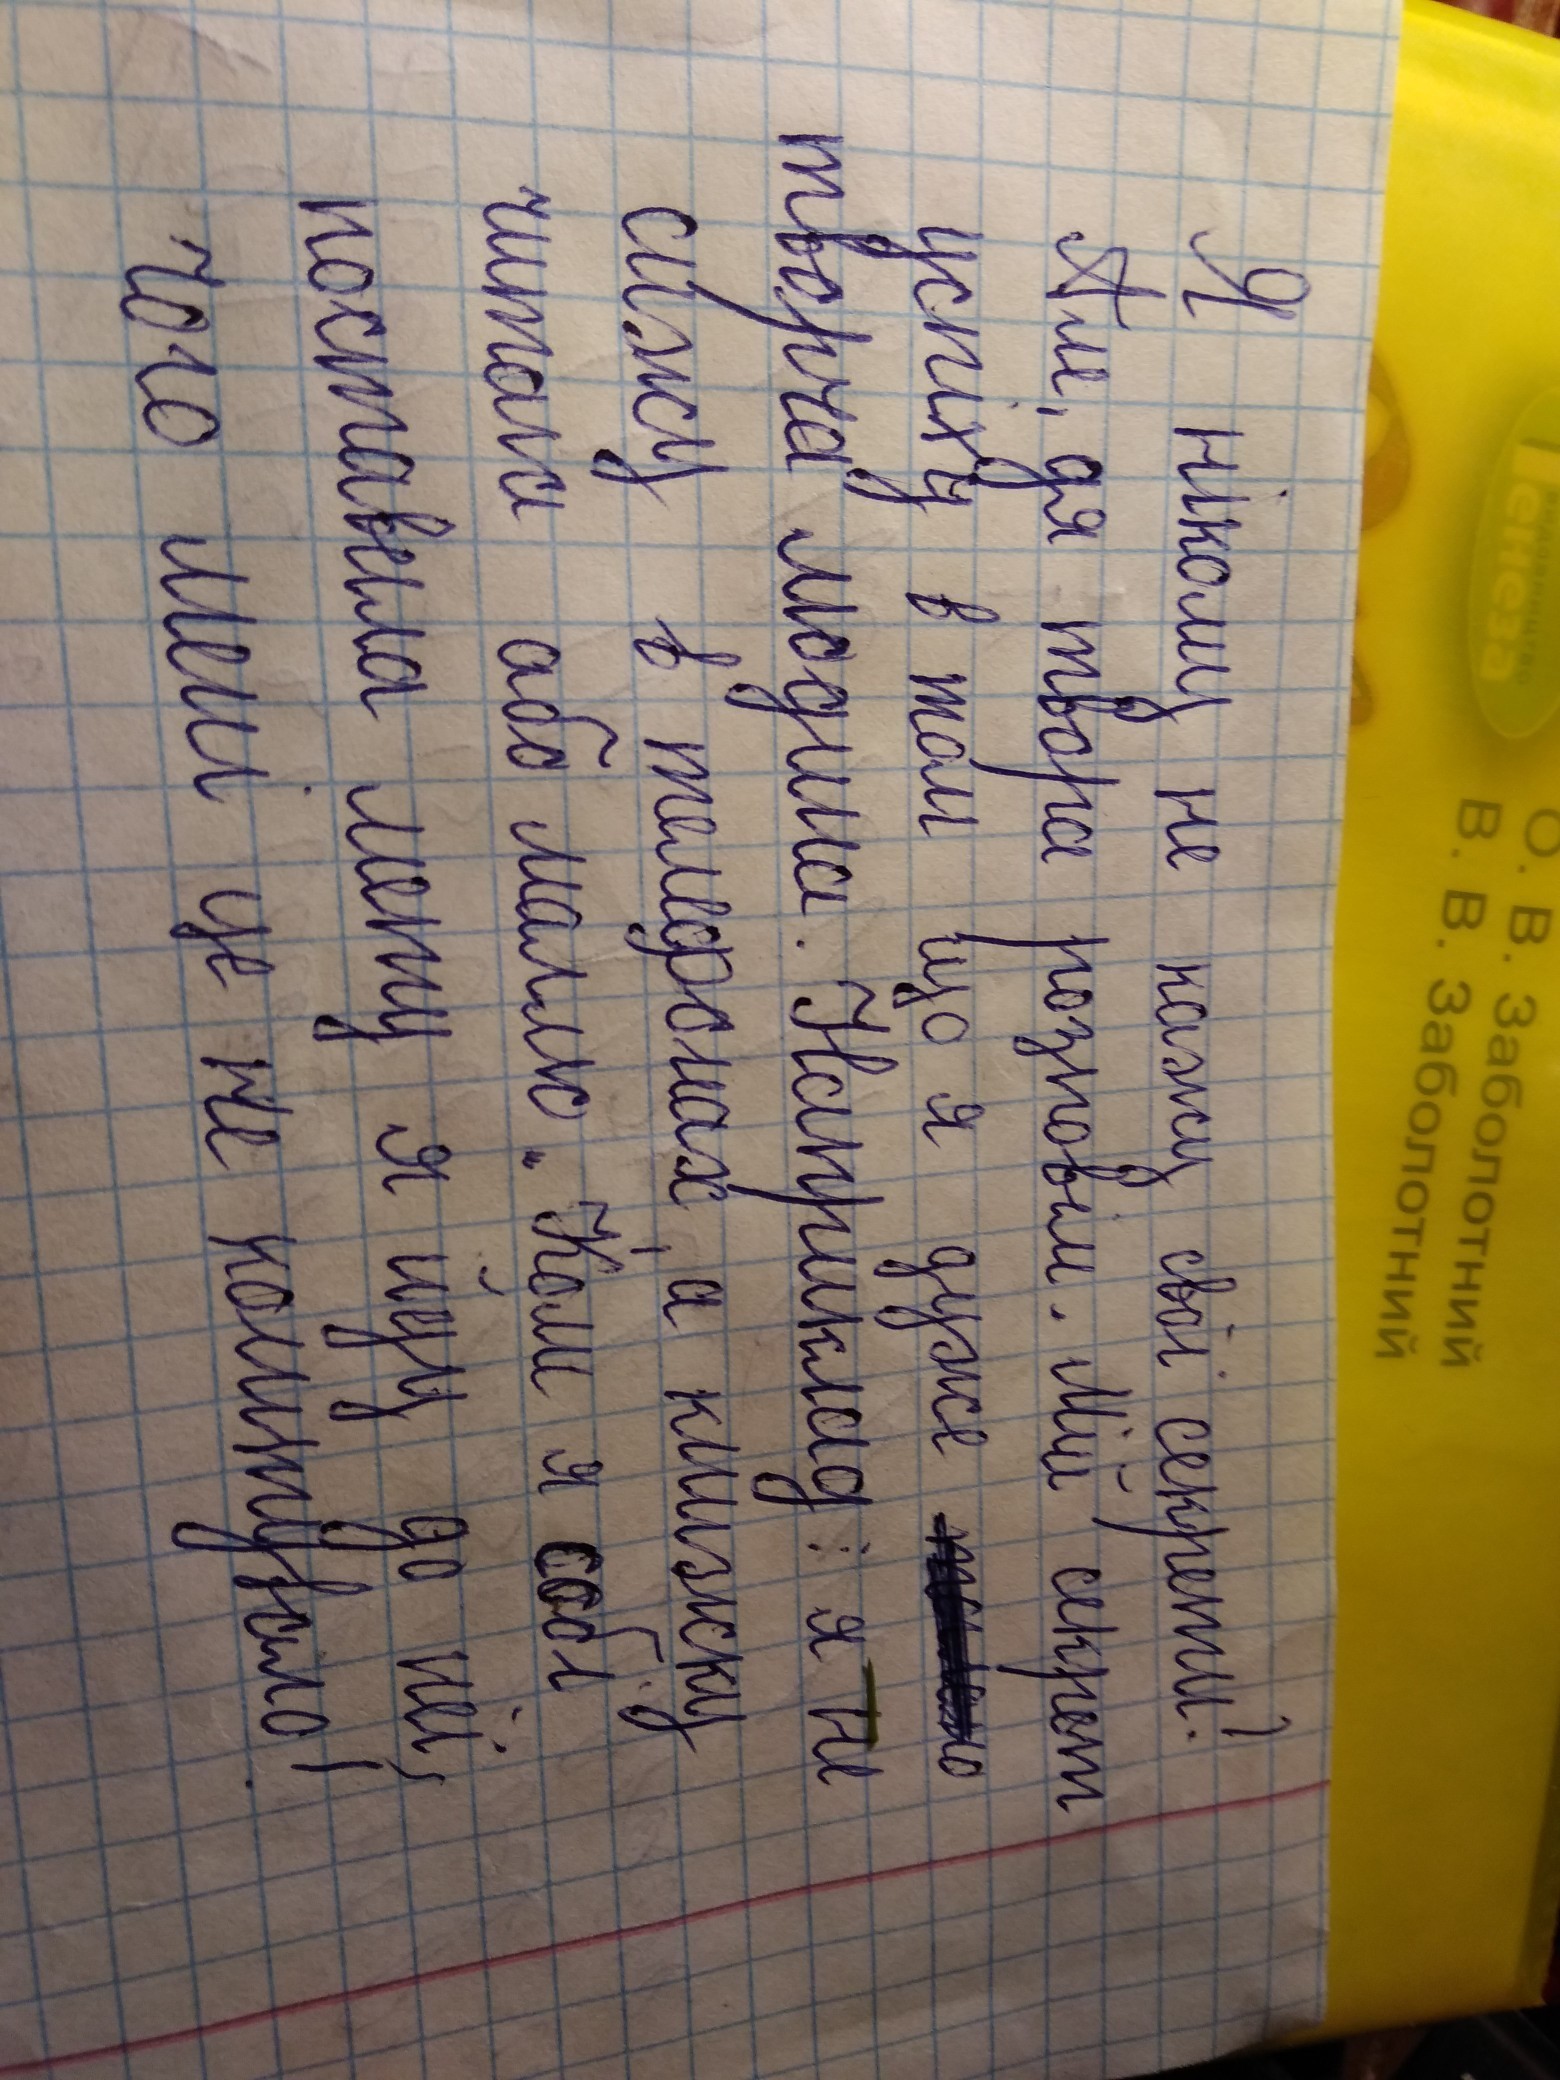 Я нікому не кажу свої секрети.
Але, дя твора розповім. Мій секрет
успіху в том що я дуже
творча людина. Наприклад: я не
сіжу в телефонах, а книжку
читаю або малюю. Коли я собі
поставила мету я йду до неї,
чого мені це не коштувало!
О. В. Заболотний
В. В. Заболотний
ВИДАВНИЦТВО
Генеза